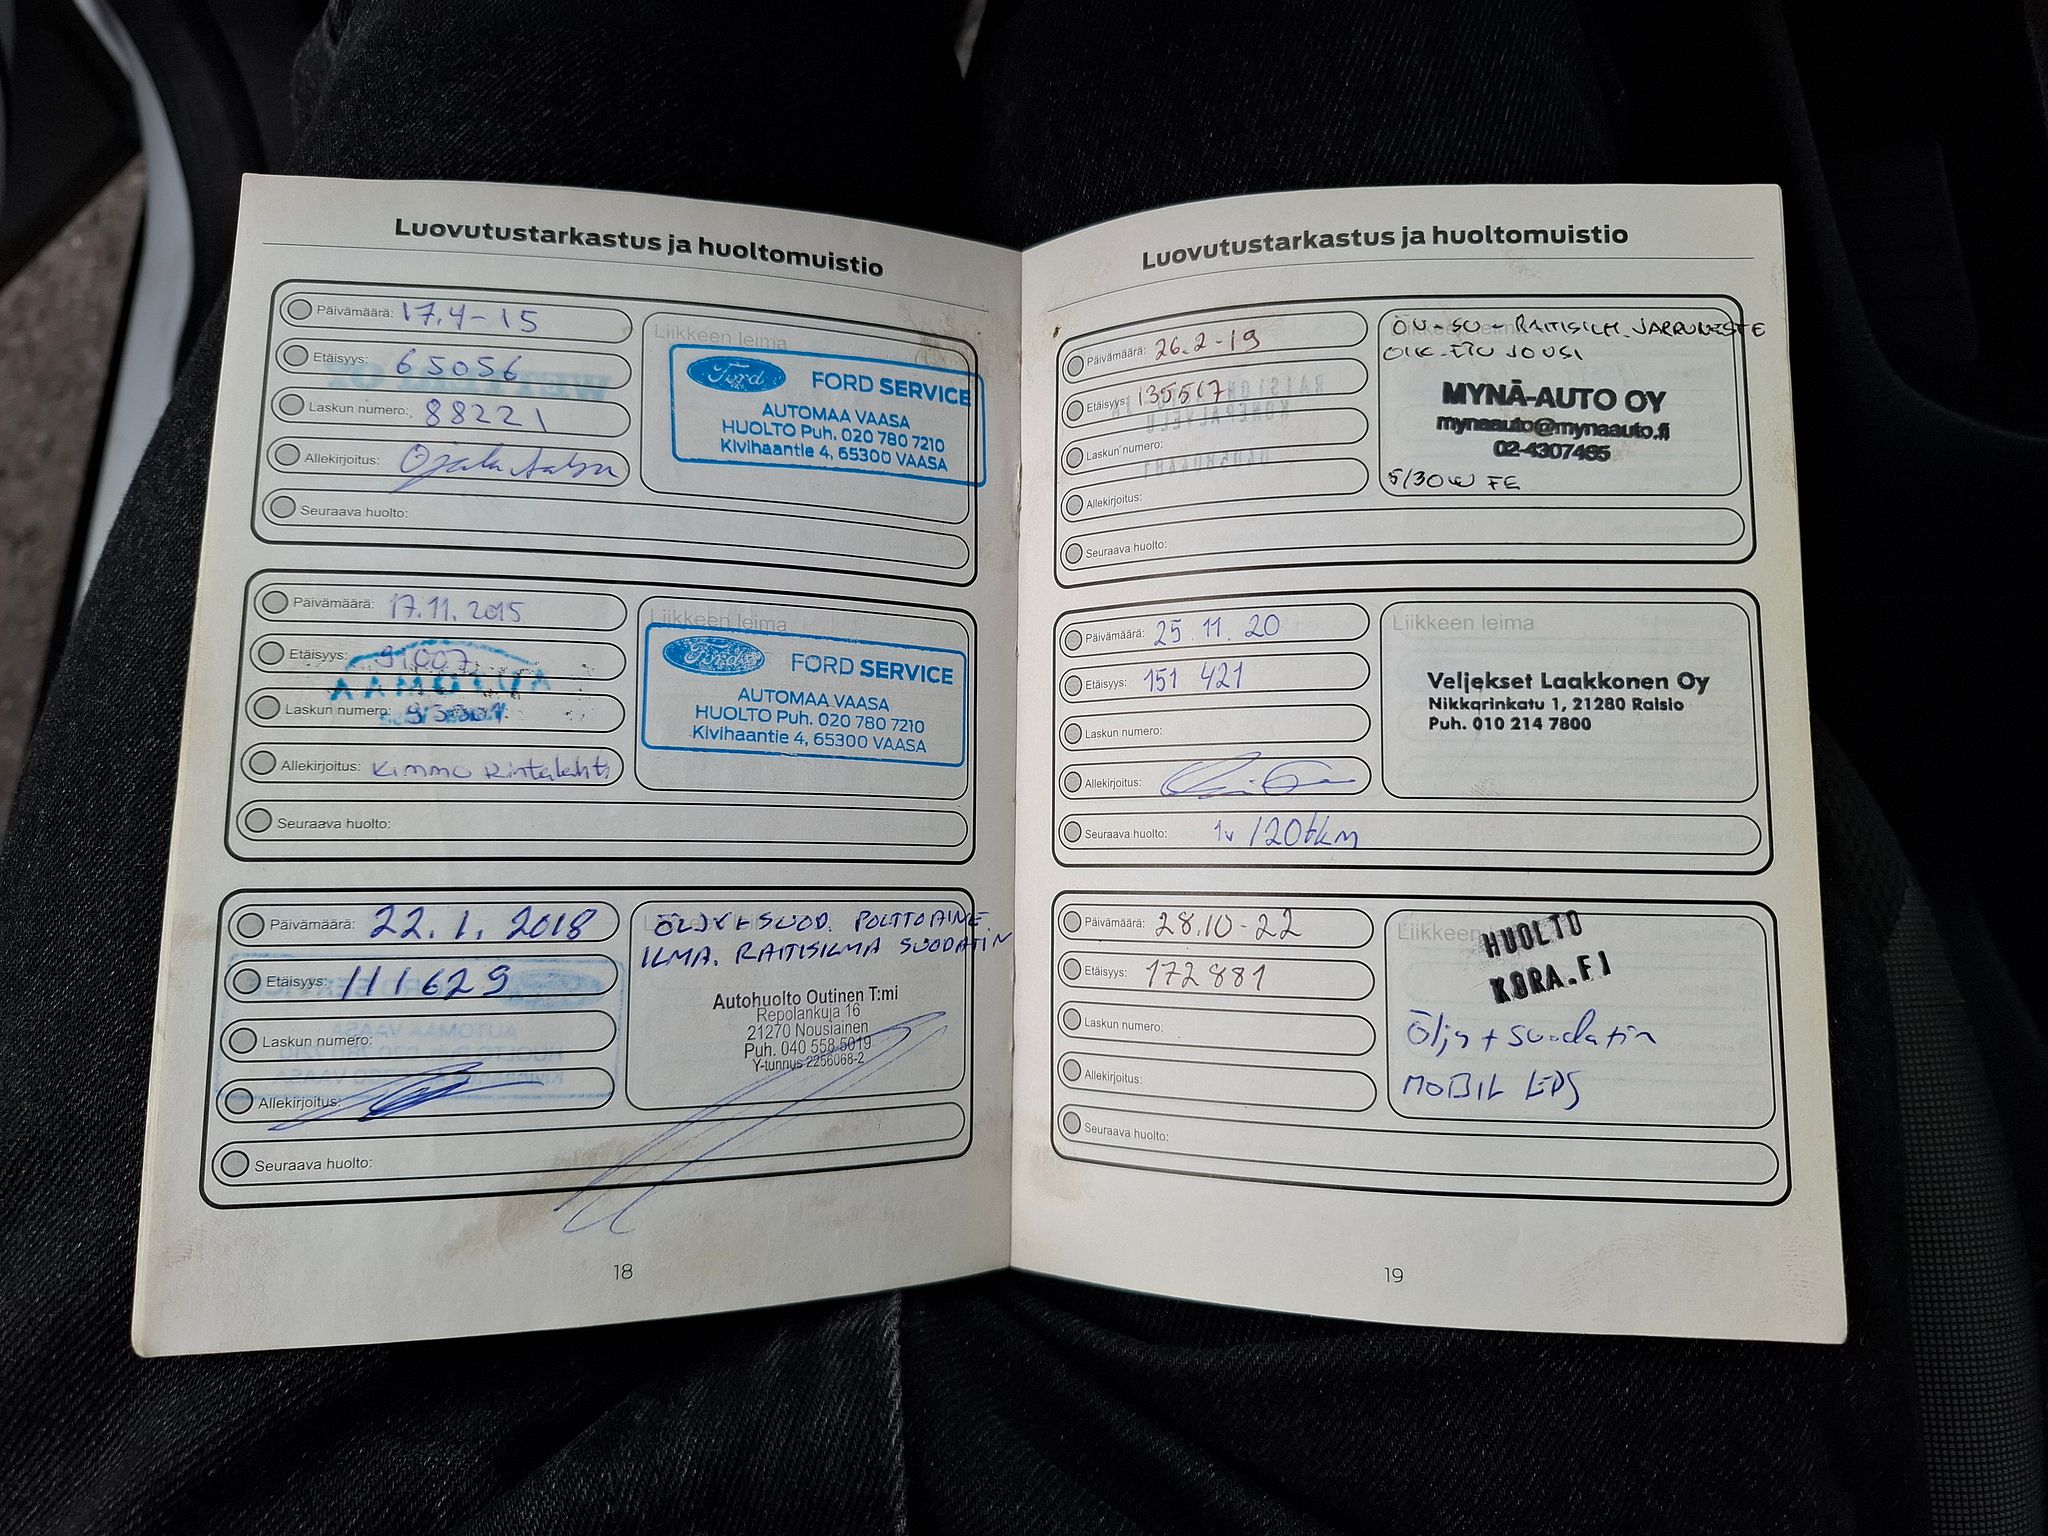 Luovutustarkastus ja huoltomuistio
Päivämäärä: 17.4-15
Etäisyys: 65056
Laskun numero: 88221
Allekirjoitus:
Seuraava huolto:
Liikkeen leima
Ford FORD SERVICE
AUTOMAA VAASA
HUOLTO Puh. 020 780 7210
Kivihaantie 4, 65300 VAASA
Päivämäärä: 17.11.2015
Etäisyys: 91007
Laskun numero:
Allekirjoitus: Kimmo Rintalahti
Seuraava huolto:
Liikkeen leima
Ford FORD SERVICE
AUTOMAA VAASA
HUOLTO Puh. 020 780 7210
Kivihaantie 4, 65300 VAASA
Päivämäärä: 22.1.2018
Etäisyys: 111629
Laskun numero:
Allekirjoitus:
Seuraava huolto:
ÖLJY+SUOD. POLTTOAINE.
ILMA. RAITISILMA SUODATIN
Autohuolto Outinen T:mi
Repolankuja 16
21270 Nousiainen
Puh. 040 558 5019
Y-tunnus 2256068-2
18
Luovutustarkastus ja huoltomuistio
Päivämäärä: 26.2-19
Etäisyys: 135517
Laskun numero:
Allekirjoitus:
Seuraava huolto:
ÖV-SU-RAITISILM. JARRUNESTE
OIK-ETU JOUSI
MYNÄ-AUTO OY
mynaauto@mynaauto.fi
02-4307465
5/30W FE
Päivämäärä: 25.11.20
Etäisyys: 151 421
Laskun numero:
Allekirjoitus:
Seuraava huolto: 1v/20tkm
Liikkeen leima
Veljekset Laakkonen Oy
Nikkarinkatu 1, 21280 Raisio
Puh. 010 214 7800
Päivämäärä: 28.10-22
Etäisyys: 172881
Laskun numero:
Allekirjoitus:
Seuraava huolto:
Liikkeen
HUOLTO
KORA.FI
Öljy + suodatin
MOBIL
19